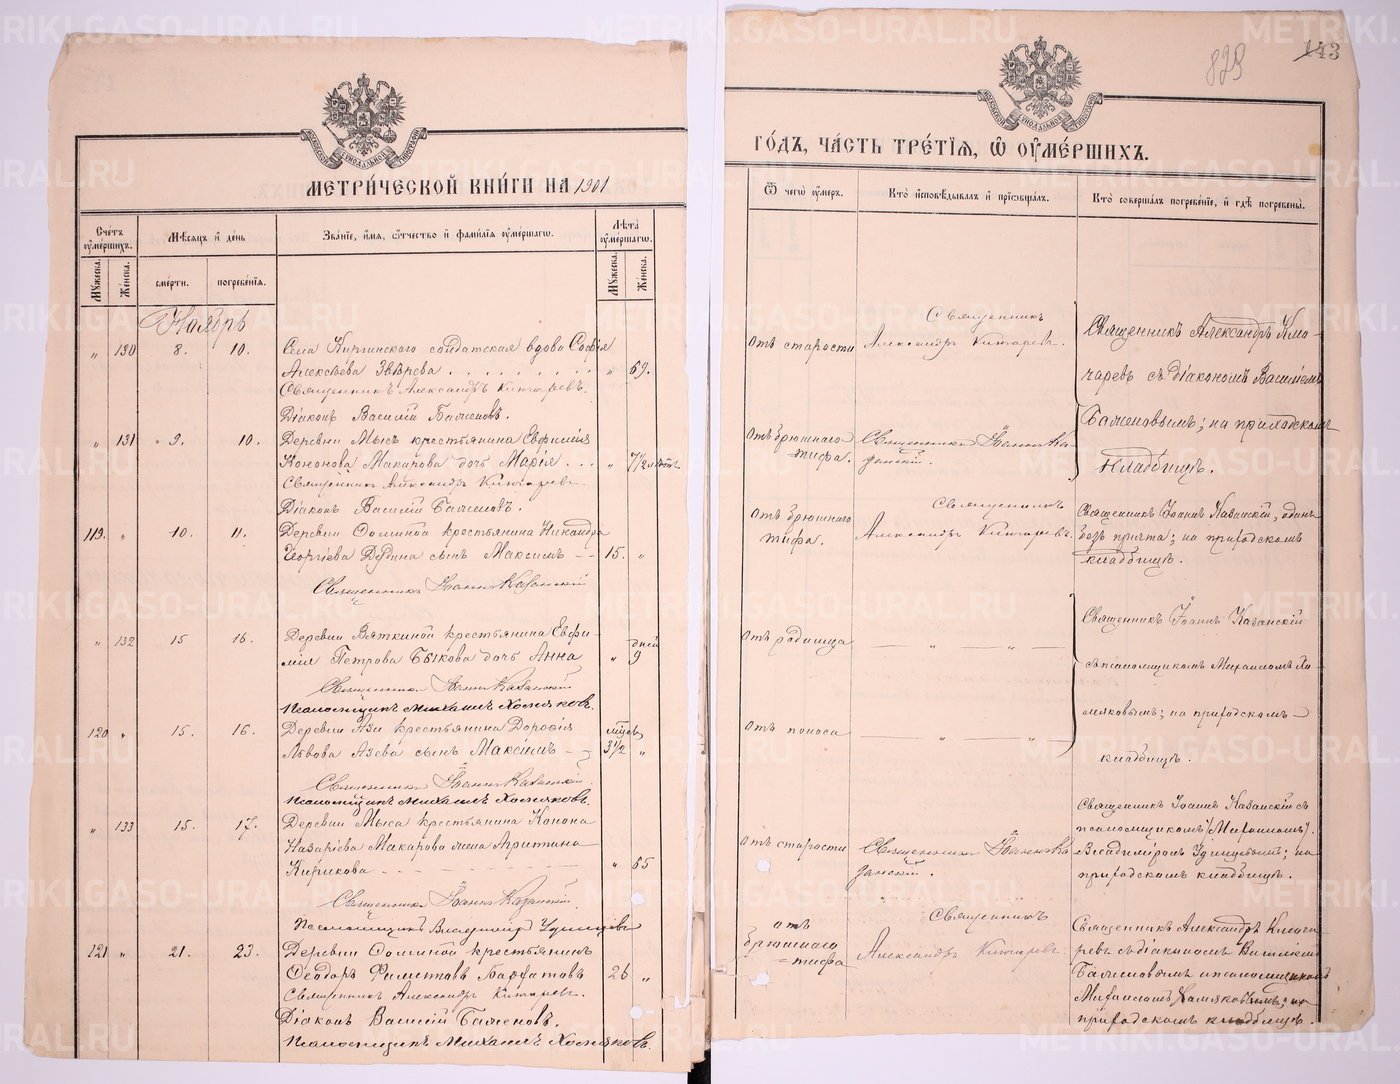 МЕТРИ́ЧЕСКОЙ КНИ́ГИ НА 1901
Счетъ ᲂу҆ме́ршихъ.
Мѣсяцъ и҆ день
Зва́нїе, и҆́мя, ѻ҆́тчество и҆ фами́лїя ᲂу҆ме́ршагѡ.
Лѣта̀ ᲂу҆ме́ршагѡ.
Мꙋжеска.
Женска.
сме́рти.
погребе́нїя.
Мꙋжеска.
Женска.
Ноябрь
„ 130 8. 10. Села Киргинскаго солдатская вдова Софія
Алексѣева Звѣрева . . . . . . . . „ 69.
Священникъ Александръ
Діаконъ Василій Баженовъ.
„ 131 9. 10. Деревни Мысъ крестьянина Евфимія
Кононова Макарова дочь Марія . . . „ 7½ лѣтъ
Священникъ Александръ
Діаконъ Василій Баженовъ.
119. „ 10. 11. Деревни Соминой крестьянина Никандра
Георгіева Дудина сынъ Максимъ – – 15. „
Священникъ Іоаннъ Казанскій
„ 132 15 16. Деревни Вяткиной крестьянина Евфи-
мія Петрова Быкова дочь Анна „ дней 9
Священникъ Іоаннъ Казанскій
Псаломщикъ Михаилъ Хомяковъ.
120 „ 15. 16. Деревни Ази крестьянина Дорофія
Львова Азева сынъ Максимъ – 3½ „
Священникъ Іоаннъ Казанскій.
Псаломщикъ Михаилъ Хомяковъ.
„ 133 15. 17. Деревни Мыса крестьянина Конона
Назаріева Макарова жена
Кирикова – – – – „ 65
Священникъ Іоаннъ Казанскій.
Псаломщикъ Владиміръ Удинцевъ
121 „ 21. 23. Деревни Соминой крестьянинъ
Ѳеодоръ 26 „
Священникъ Александръ
Діаконъ Василій Баженовъ.
Псаломщикъ Михаилъ Хомяковъ.
829
143
ГО́ДЪ, ЧА́СТЬ ТРЕ́ТЇЯ, Ѽ ᲂУ҆МЕ́РШИХЪ.
Ѿ чегѡ̀ ᲂу҆́меръ.
Кто̀ и҆сповѣ́дывалъ и҆ прїѻбща́лъ.
Кто̀ соверша́лъ погребе́нїе, и҆ гдѣ̀ погребены̀.
Отъ старости
Священникъ
Александръ
Священникъ Александръ Клю-
чаревъ съ діакономъ Василіемъ
Баженовымъ; на приходскомъ
кладбищѣ.
Отъ брюшнаго
тифа.
Священникъ Іоаннъ Ка
занскій.
Отъ брюшнаго
тифа.
Священникъ
Александръ
Священникъ Іоаннъ Казанскій, одинъ
безъ причта; на приходскомъ
кладбищѣ.
Отъ родимца
— „ — „ —
Священникъ Іоаннъ Казанскій
съ псаломщикомъ Михаиломъ Хо-
мяковымъ; на приходскомъ –
кладбищѣ.
Отъ поноса
— „ — „ —
Отъ старости
Священникъ Іоаннъ Ка
занскій.
Священникъ Іоаннъ Казанскій съ
псаломщикомъ (Михаиломъ).
Владиміромъ Удинцевымъ; на
приходскомъ кладбищѣ.
отъ
брюшнаго
тифа
Священникъ
Александръ
Священникъ Александръ Ключа
ревъ съ діакономъ Василіемъ
Баженовымъ и псаломщикомъ
Михаиломъ Хомяковымъ; на
приходскомъ кладбищѣ.
METRIKI.GASO-URAL.RU